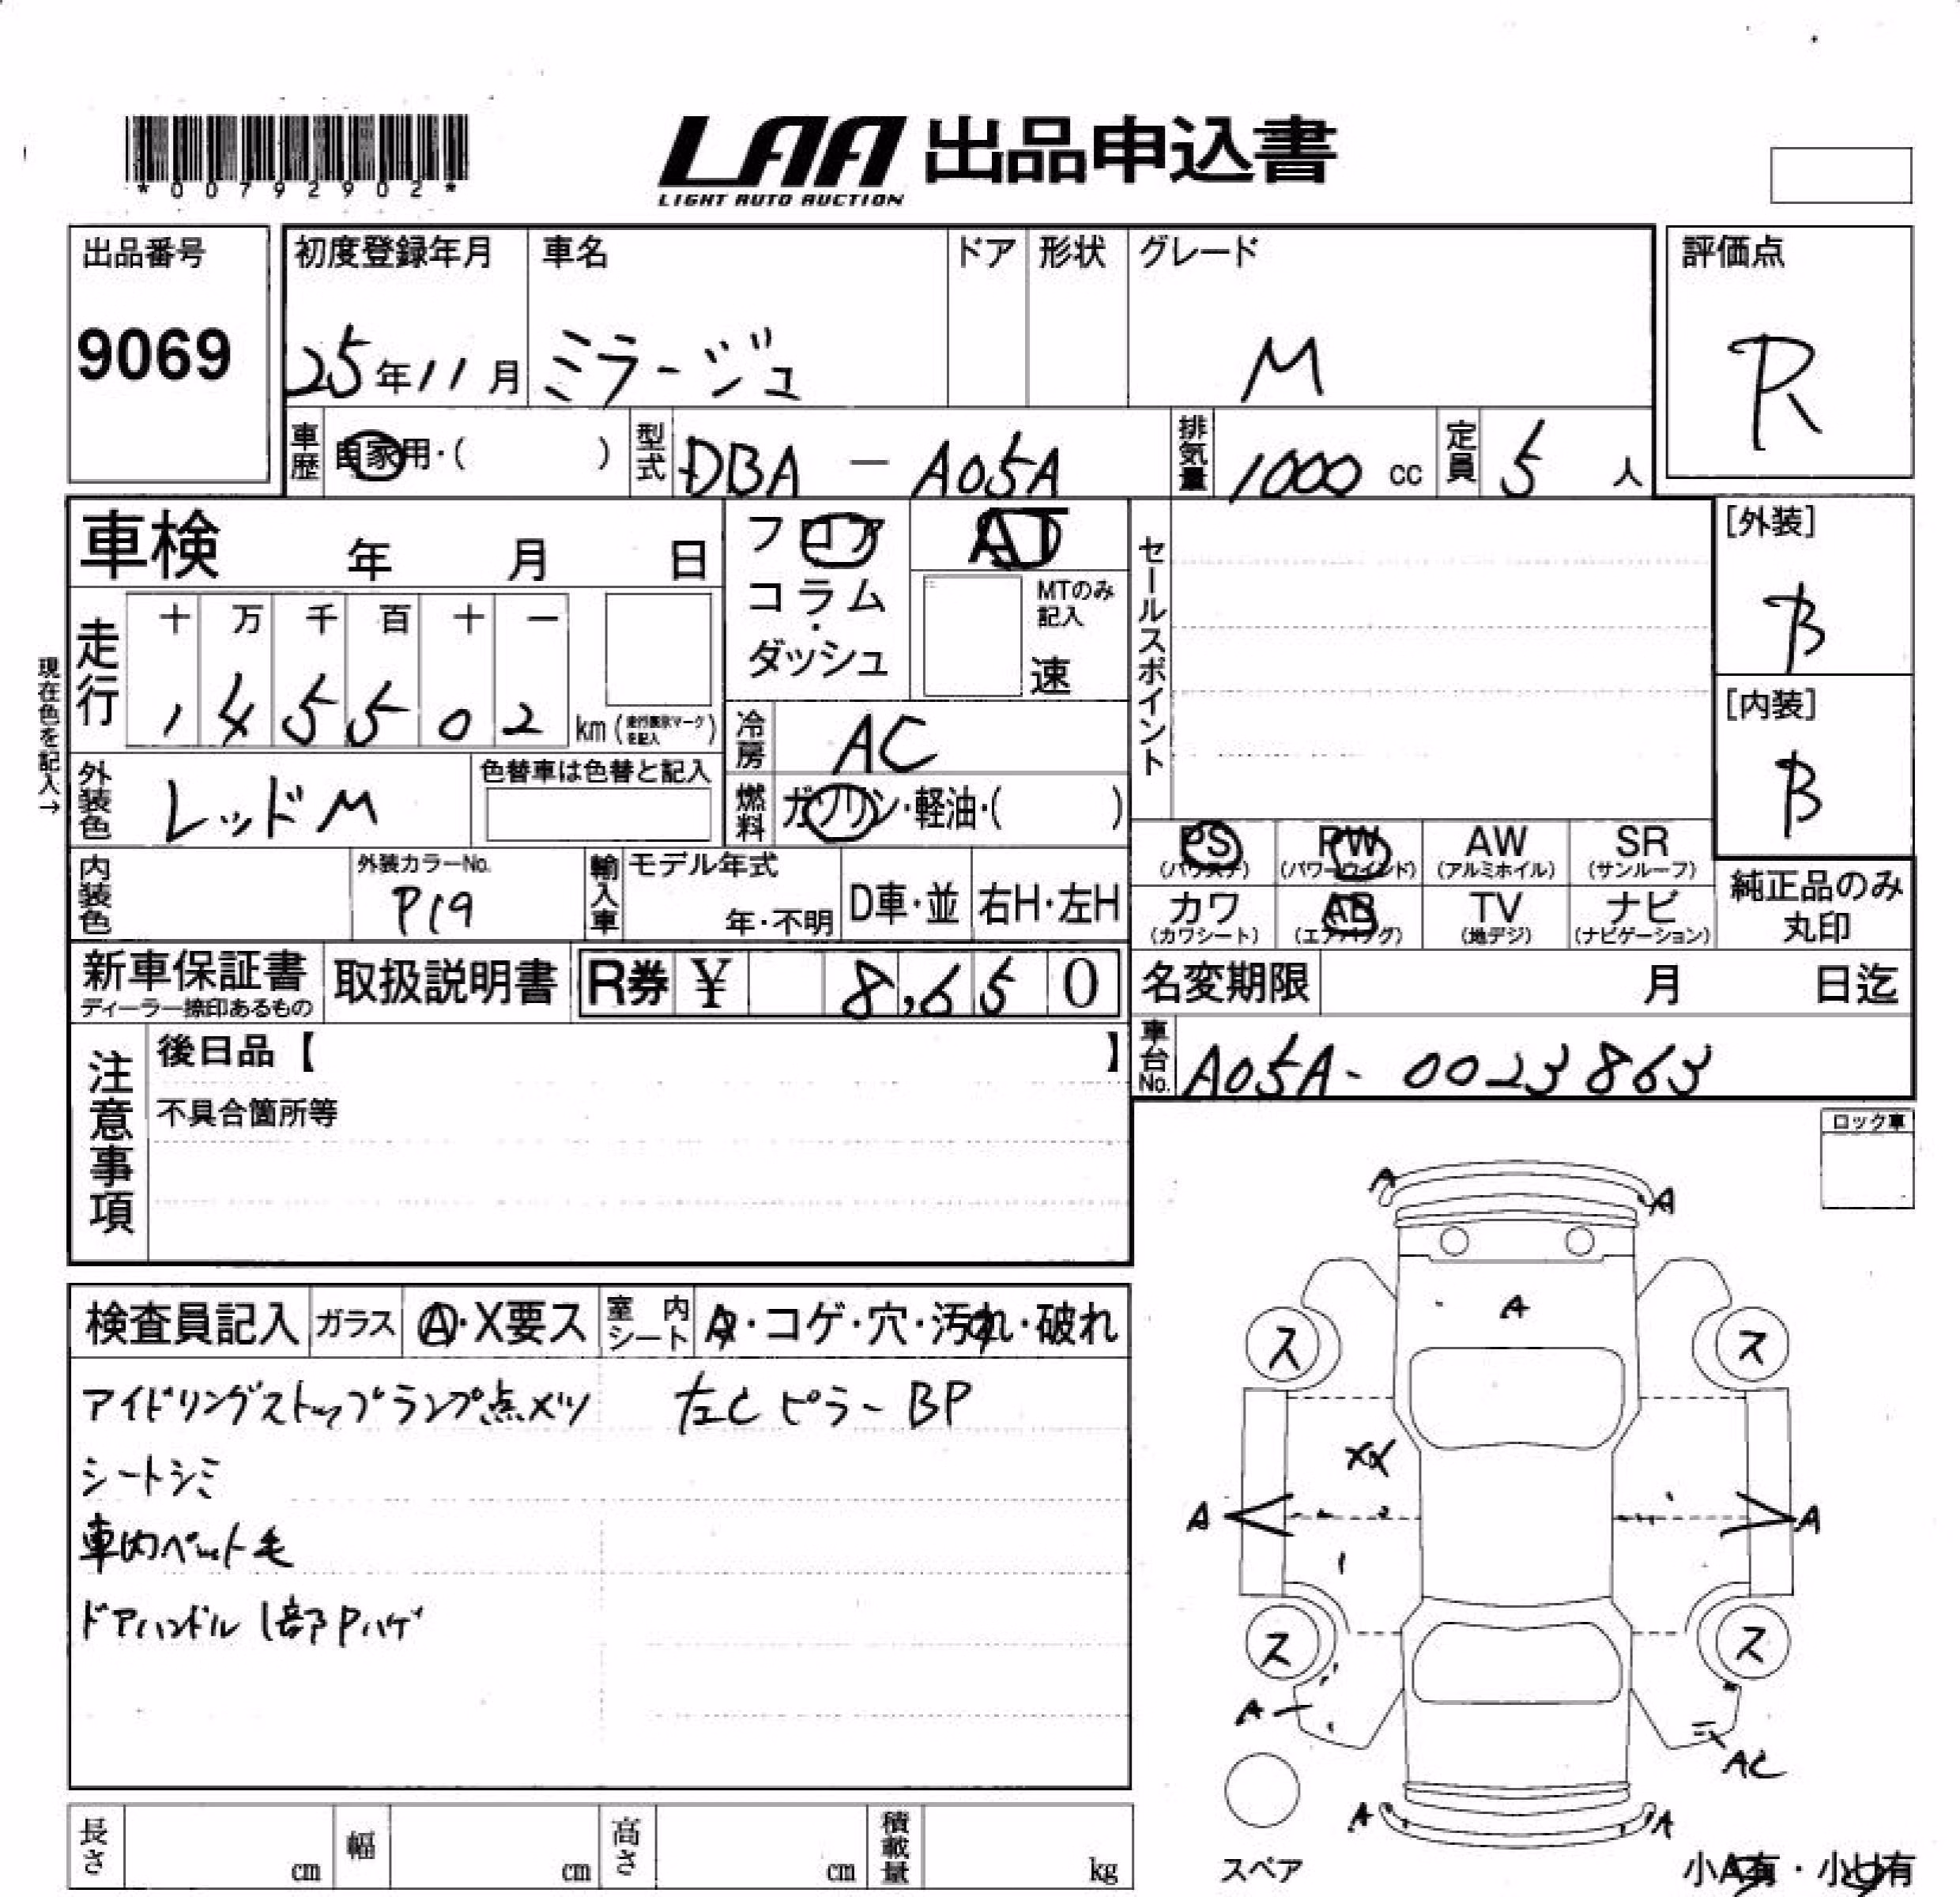 *00792902*
LAA 出品申込書
LIGHT AUTO AUCTION
出品番号
9069
初度登録年月 車名 ドア 形状 グレード
25年11月 ミラージュ M
評価点
R
車歴 自家用・( ) 型式 DBA-A05A 排気量 1000 cc 定員 5 人
車検 年 月 日
フロア
コラム
・
ダッシュ
AT
MTのみ
記入
速
セールスポイント
[外装]
B
[内装]
B
現在色を記入→
走行 十 万 千 百 十 一
1 4 5 5 0 2 km (走行表示マークを記入)
冷房 AC
外装色 レッドM 色替車は色替と記入
燃料 ガソリン・軽油・( )
内装色 外装カラーNo. P19
輸入車 モデル年式 年・不明 D車・並 右H・左H
PS (パワステ) PW (パワーウインド) AW (アルミホイル) SR (サンルーフ)
カワ (カワシート) AB (エアバッグ) TV (地デジ) ナビ (ナビゲーション)
純正品のみ
丸印
新車保証書
ディーラー捺印あるもの
取扱説明書 R券 ¥ 8,650
名変期限 月 日迄
車台No. A05A-0023863
注意事項
後日品【 】
不具合箇所等
ロック車
検査員記入 ガラス A・X要ス 室内シート A・コゲ・穴・汚れ・破れ
アイドリングストップランプ点メツ 左Cピラー BP
シートシミ
車内ペット毛
ドアハンドル 1部Pハゲ
A A
A
ス ス
XX
A A
ス ス
A
AC
A A
スペア
小A有・小U有
長さ cm 幅 cm 高さ cm 積載量 kg